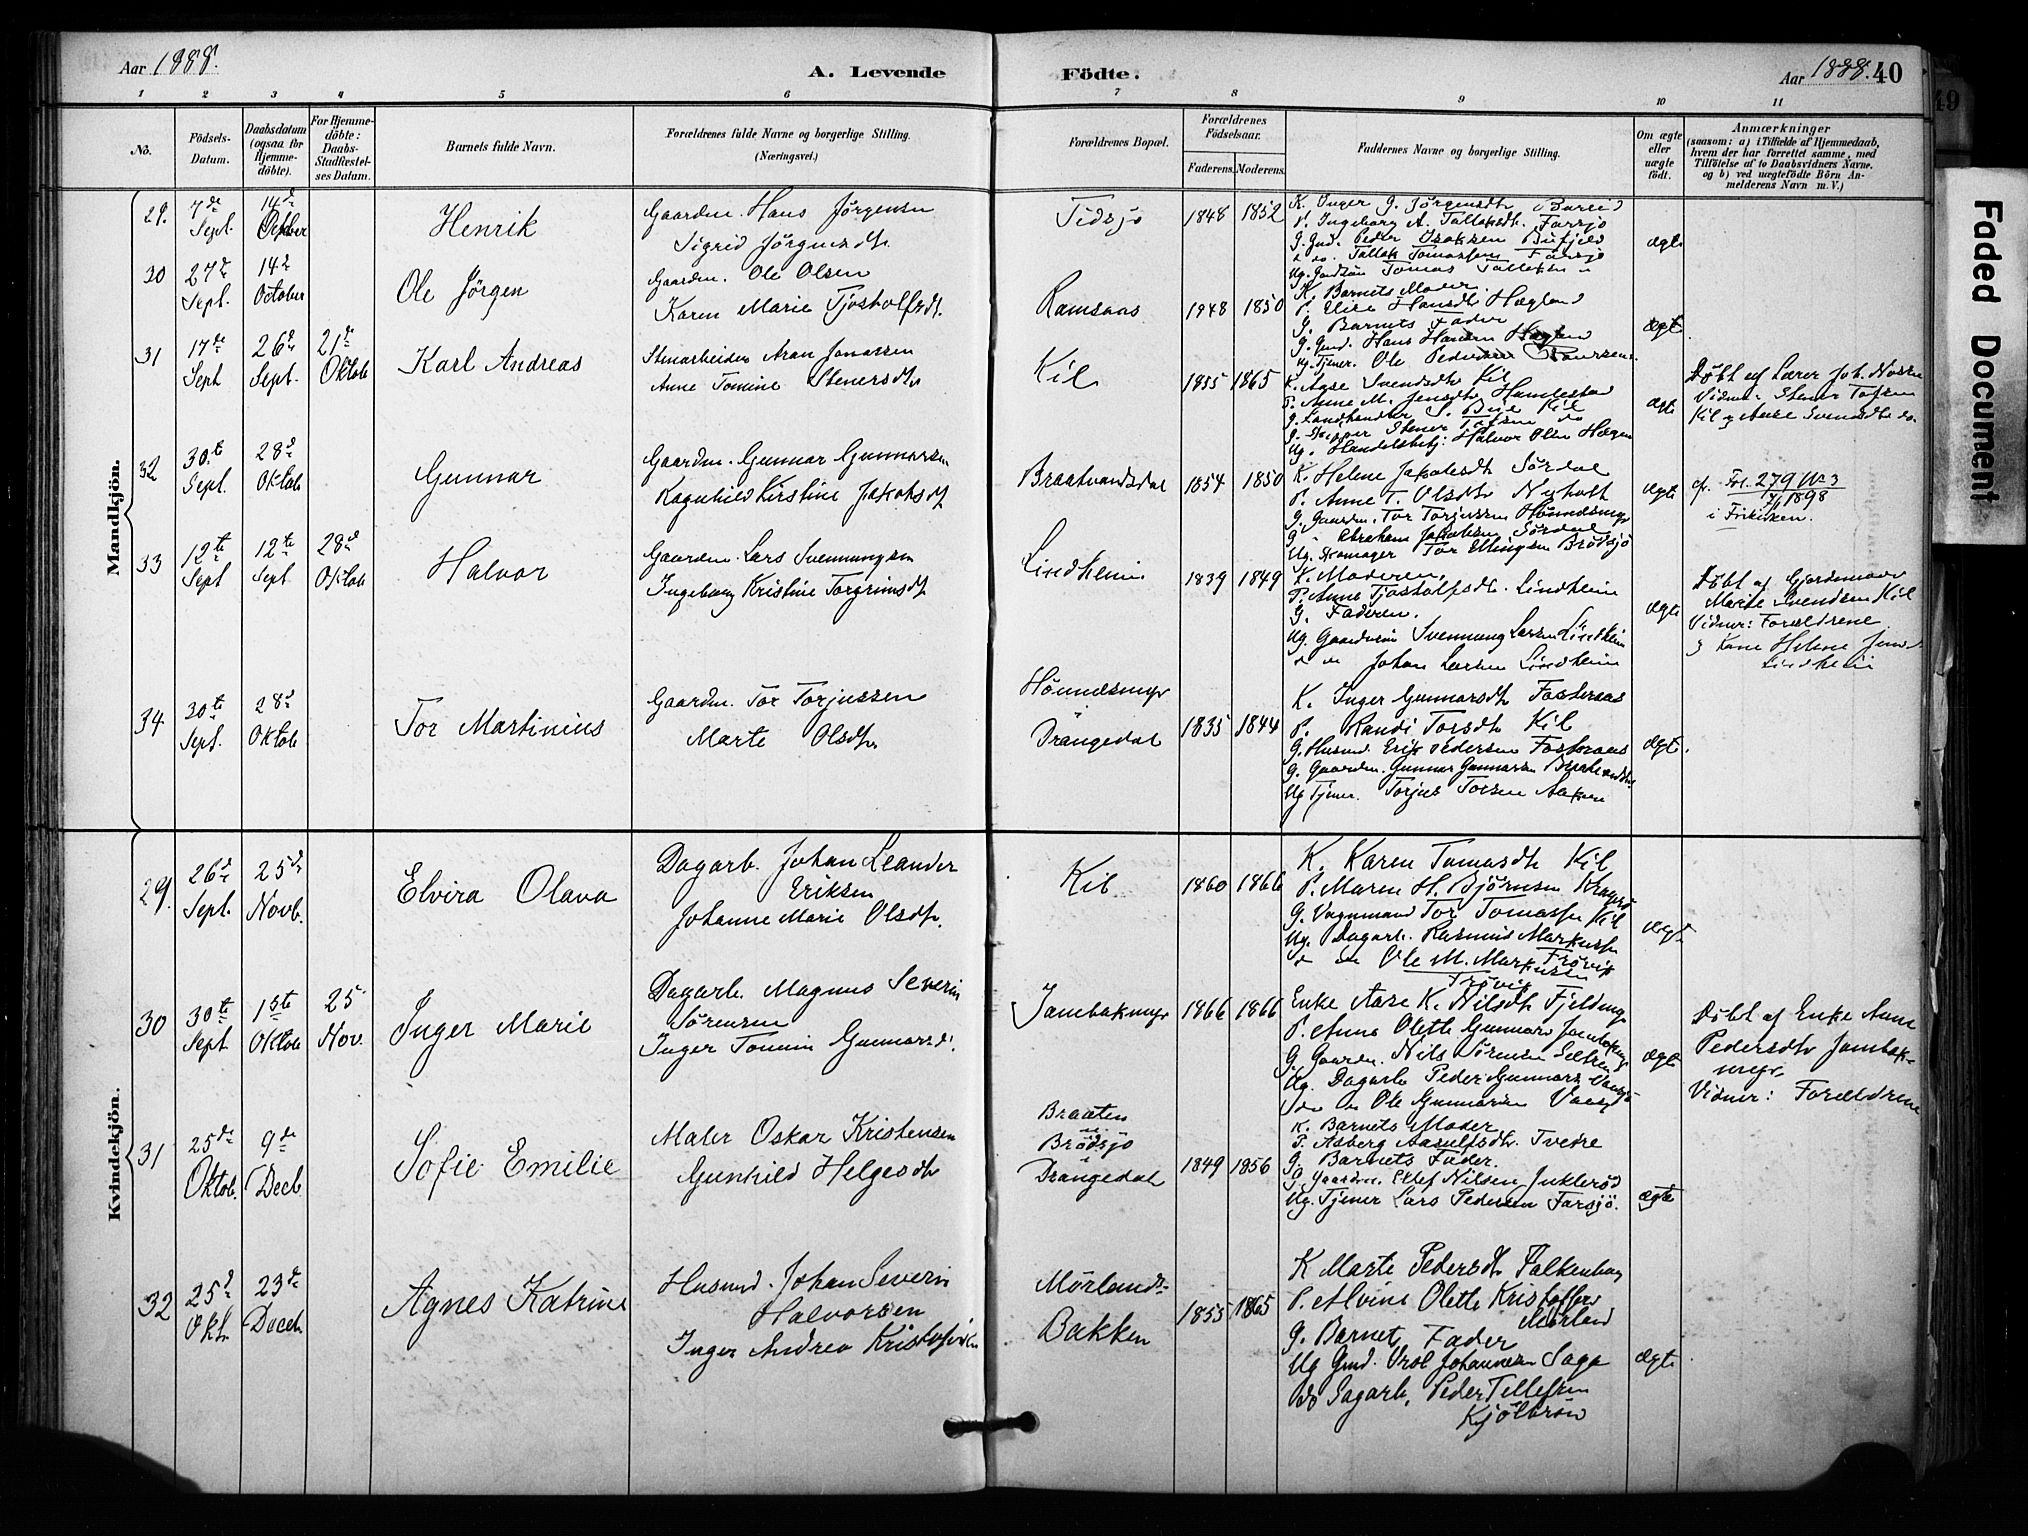 Aar 1888.
A. Levende
Födte.
Aar 1888. 40
49
1 2 3 4 5 6 7 8 9 10 11
No.
Födsels-
Datum.
Daabsdatum
(ogsaa for
Hjemme-
döbte).
For Hjemme-
döbte:
Daabs-
Stadfæstel-
ses Datum.
Barnets fulde Navn.
Forældrenes fulde Navne og borgerlige Stilling.
(Næringsvei.)
Forældrenes Bopæl.
Forældrenes
Födselsaar.
Faderens.
Moderens.
Faddernes Navne og borgerlige Stilling.
Om ægte
eller
uægte
födt.
Anmærkninger
(saasom: a) i Tilfælde af Hjemmedaab,
hvem der har forrettet samme, med
Tilföielse af to Daabsvidners Navne.
og b) ved uægtefödte Börn An-
melderens Navn m. V.)
Mandkjön.
29. 7de Sept. 14d October
Henrik
Gaardm. Hans Jørgensen
Sigrid Jørgensdtr
Tidsjø
1848 1852
K. Inger G. Jørgensdtr
P. Ingeborg A. Tallaksdtr. Farsjø
G. Gmd. Peder Isaksen Bufjeld
do. Tallak Tomassen Farsjø
Ug. Tomas Tallaksen
ægte
30 27de Sept. 14d October
Ole Jörgen
Gaardm. Ole Olsen
Karen Marie Tjostolfsdt.
Ramsaas
1848 1850
K. Barnets Moder.
P. Elise Hansdtr Hægland
G. Barnets Fader
G. Gmd. Hans Hansen
Ug. Tjener. Ole Pedersen
ægte
31 17de Sept 26d Sept. 21de Oktob
Karl Andreas
Stenarbeider Aran Jonassen
Anne Tomine Stenersdtr
Kil
1855 1865
K. Aase Svendsdtr Kil
P. Anne M. Jensdtr Humlestad
G. Landhandler S. Bye Kil
G. Stener Tafsen do
Ug. Handelsbetj: Halvor Olsen Hægen
ægte
Døbt af Lærer Joh.
Vidner Stener Tafsen
Kil og Aase Svendsdtr do.
32 30te Sept. 28d Oktob
Gunnar
Gaardm. Gunnar Gunnarsen
Ragnhild Kirstine Jakobsdt
Braatvandsdal
1854 1850
K. Helene Jakobsdtr Sördal
P. Anne T. Olsdtr Nyholt
G. Gaardm. Tor Torjussen Hömndsmyr
G " Abraham Jakobsen Sördal
Ug. Skomager Tor Ellingsen Brödsjø
ægte
cf. Fol. 279 No 3
1898
i Frikirken.
33 12te Sept 12te Sept. 28d Oktob
Halvor
Gaardm. Lars Svenningsen
Ingeborg Kristine Torgrimsdt
Lindheim
1839 1849
K. Moderen,
P. Anne Tjostolfsdt. Lindheim
G. Faderen.
Ug. Svennung Larsen Lindheim
do Johan Larsen Lindheim
ægte
Døbt af Gjordemoder
Marte Svendsen Kil
Vidner: Forældrene
Helene
Lindheim
34 30te Sept. 28d Oktob
Tor Martinius
Gaardm. Tor Torjussen
Marte Olsdtr
Hömndsmyr
Drangedal
1835 1844
K. Inger Gunnarsdt Fosteraas
P. Randi Torsdt Kil
G. Husmd. Erik Pedersen Fosteraas
G. Gaardm. Gunnar Gunnarsen
Ug Tjener. Torjus Torsen Aakre
ægte
Kvindekjön.
29. 26d Sept. 25de Novb.
Elvira Olava
Dagarb. Johan Leander
Eriksen
Johanne Marie Olsdtr.
Kil
1860 1866
K. Karen Tomasdtr Kil
P. Maren H. Björnsen Kragerø
G. Vognmand Tor Tomassen Kil
Ug. Dagarb. Rasmus Markussen
Frövig
do do Ole M. Markussen
Frövig
ægte
30 30te Sept 1ste Oktob 25 Nov.
Inger Marie
Dagarb. Magnus Severin
Sörensen
Inger Tomine Gunnarsd.
Jambakmyr
1866 1866
Enke Aase K. Nilsdtr
P. Anne Olette Gunnars Jambakmyr
G. Gaardm. Nils Sörensen
Ug. Dagarb Peder Gunnars
do do Ole Gunnarsen
ægte
Døbt af Enke Anne
Pedersdtr Jambak-
myr,
Vidner: Forældrene
31 25de Oktob. 9de Decb
Sofie Emilie
Maler Oskar Kristensen
Gunhild Helgesdtr
Braaten
u.
Brödsjø
i
Drangedal
1849 1856
K. Barnets Moder
P. Asberg Aasulfsdtr. Tvedre
G. Barnets Fader.
G. Gaardm. Ellef Nilsen
Ug. Tjener Lars Pedersen Farsjö.
ægte
32 25d Okt. 23de Decbr
Agnes Katrine
Husmd. Johan Severin
Halvorsen
Inger Andrea Kristofers
Mørlands-
Bakken
1855 1865
K Marte Pedersdtr Falkenborg
P. Alvine Olette Kristoffers
Mørland
G. Barnets Fader
Ug Gmd. Johannesen Saga
do Sagarb. Peder Tellefsen
Kjölbrøn
ægte
Faded Document